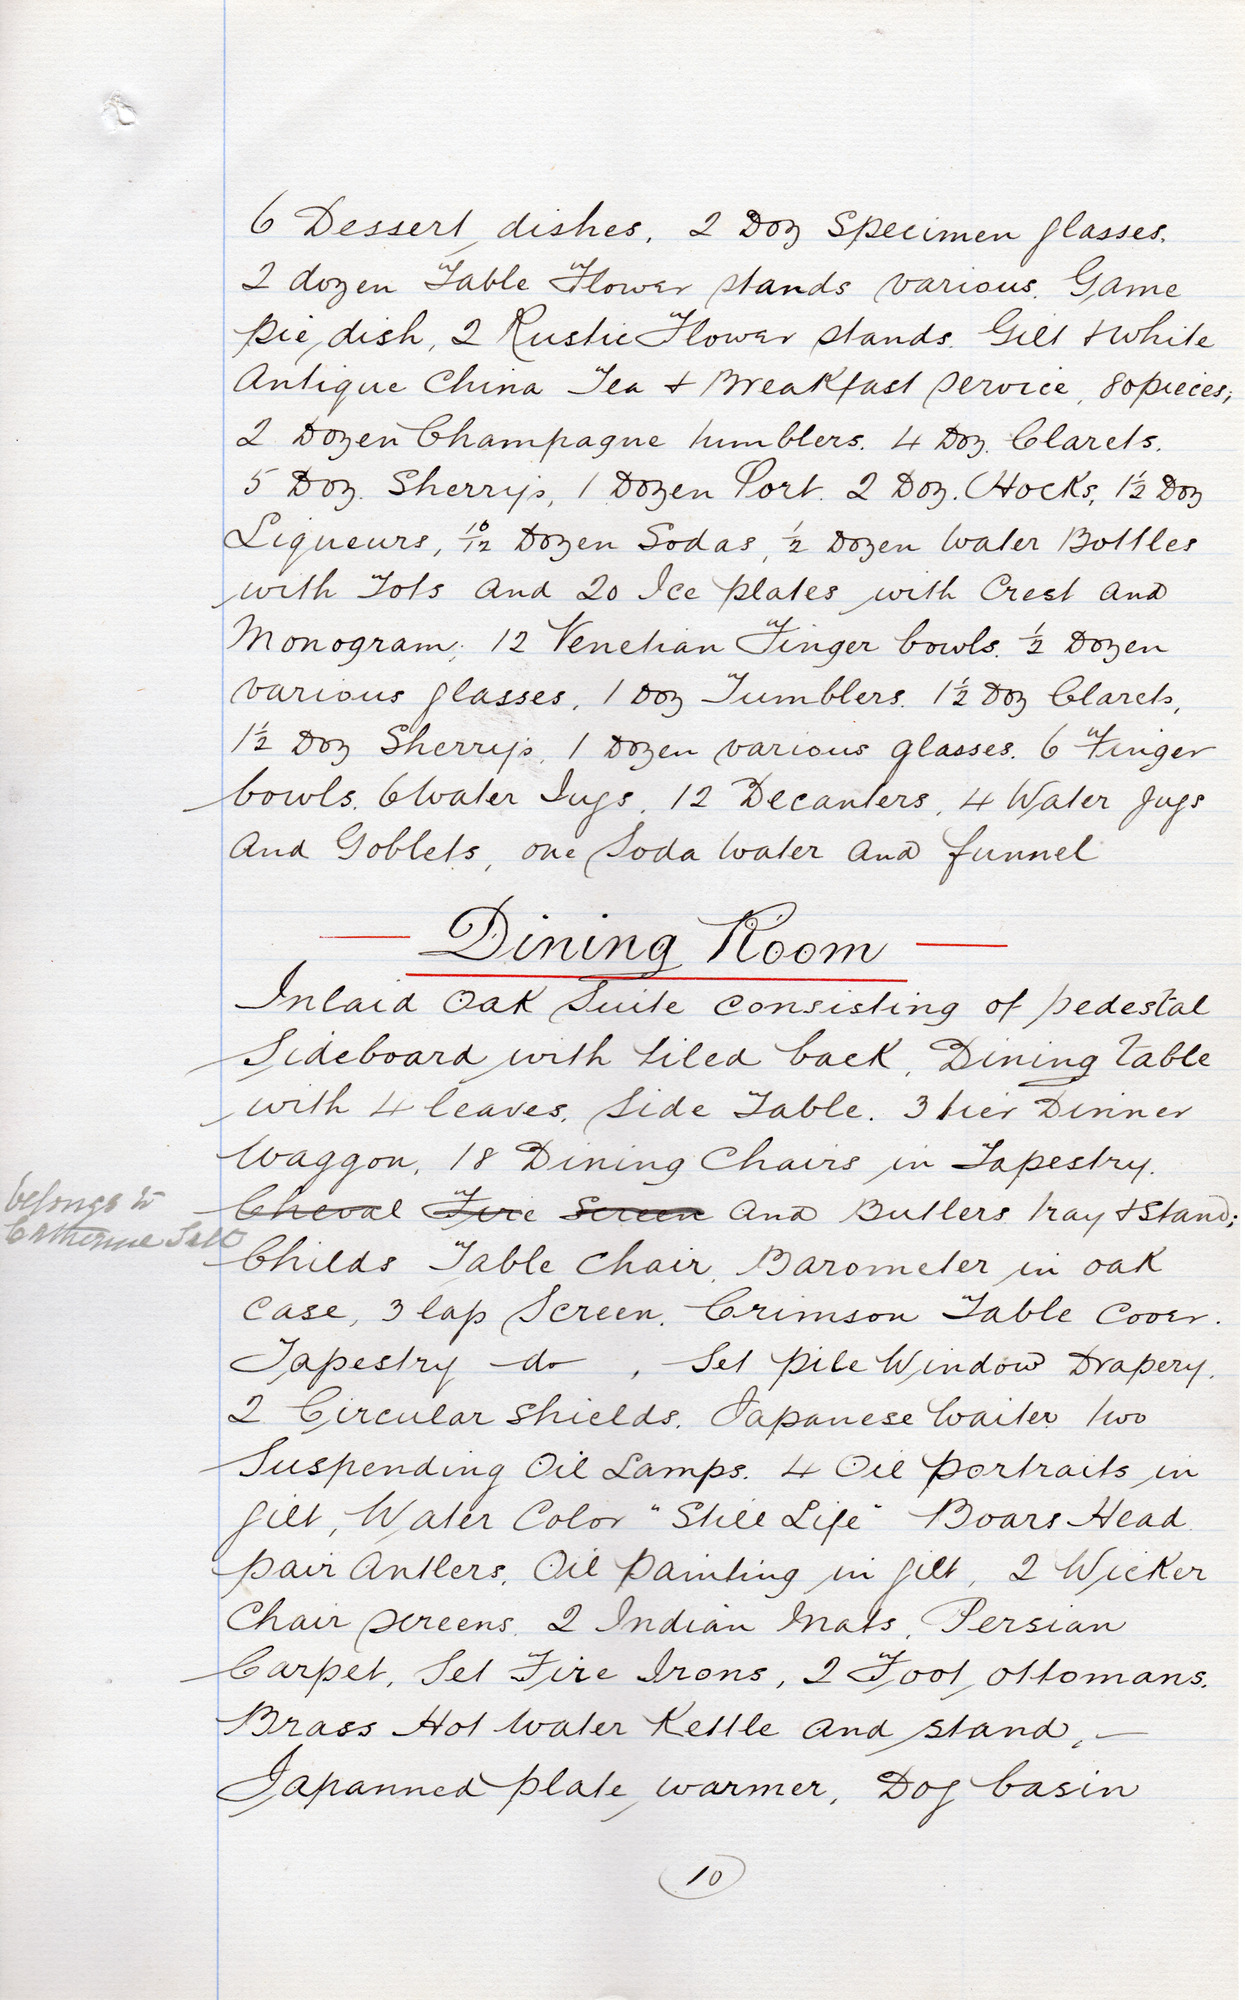 6 Dessert dishes, 2 Doz Specimen glasses.
2 dozen Table Flower stands various. Game
pie dish, 2 Rustic Flower stands. Gilt & White
Antique China Tea & Breakfast service, 80 pieces;
2 Dozen Champagne tumblers. 4 Doz. Clarets.
5 Doz. Sherrys, 1 Dozen Port. 2 Doz. Hocks, 1½ Doz
Liqueurs, 10/12 Dozen Sodas, ½ Dozen Water Bottles
with Tots and 20 Ice plates with Crest and
Monogram; 12 Venetian Finger bowls. ½ Dozen
various glasses, 1 Doz Tumblers. 1½ Doz Clarets,
1½ Doz Sherrys, 1 Dozen various glasses. 6 Finger
bowls. 6 Water Jugs, 12 Decanters, 4 Water Jugs
and Goblets, one Soda Water and funnel
— Dining Room —
Inlaid Oak Suite consisting of pedestal
Sideboard with tiled back, Dining Table
with 4 leaves, Side Table. 3 tier Dinner
Waggon, 18 Dining Chairs in Tapestry.
belongs to
Catherine
Cheval Fire Screen and Butlers tray & Stand;
Childs Table Chair, Barometer in oak
case, 3 lap Screen. Crimson Table Cover.
Tapestry do, Set pile Window Drapery.
2 Circular Shields, Japanese Waiter two
Suspending Oil Lamps. 4 Oil portraits in
gilt, Water Color "Still Life" Boars Head
pair Antlers, Oil Painting in gilt, 2 Wicker
Chair screens, 2 Indian Mats, Persian
Carpet, Set Fire Irons, 2 Foot ottomans.
Brass Hot Water Kettle and stand, —
Japanned plate warmer, Dog basin
10